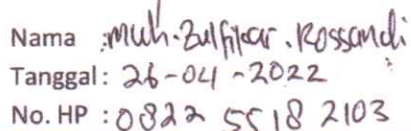 Nama : Muh. Zulfikar. Rossandi
Tanggal : 26-04-2022
No. HP : 0822 5518 2103